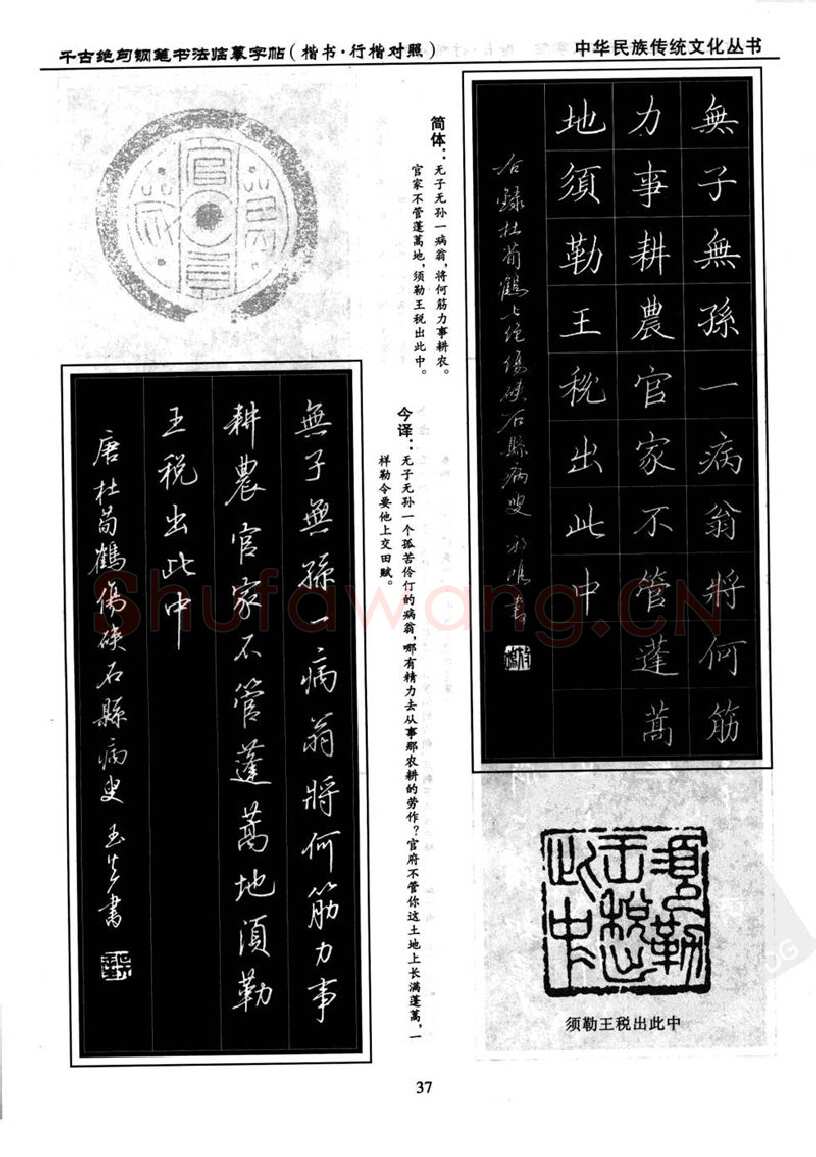 千古绝句钢笔书法临摹字帖(楷书·行楷对照)
中华民族传统文化丛书
無子無孫一病翁將何筋
力事耕農官家不管蓬蒿
地須勒王稅出此中
右錄杜荀鶴七絕傷硤石縣病叟
简体:无子无孙一病翁,将何筋力事耕农。
官家不管蓬蒿地,须勒王税出此中。
今译:无子无孙一个孤苦伶仃的病翁,哪有精力去从事那农耕的劳作?官府不管你这土地上长满蓬蒿,一
样勒令要他上交田赋。
無子無孫一病翁將何筋力事
耕農官家不管蓬蒿地須勒
王稅出此中
唐杜荀鶴傷硤石縣病叟 玉生書
須勒
王稅出
此中
须勒王税出此中
37
Shufawang.CN